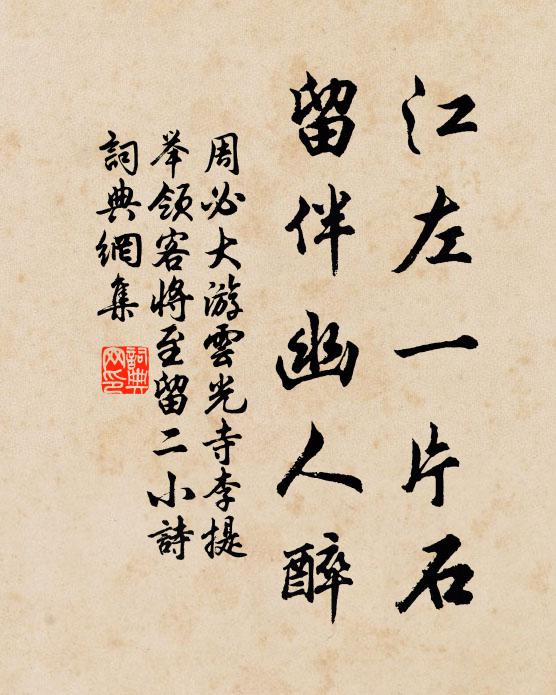 江左一片石
留伴幽人醉
周必大游雲光寺李提
举領客將至留二小詩
詞典網集
詞典網印